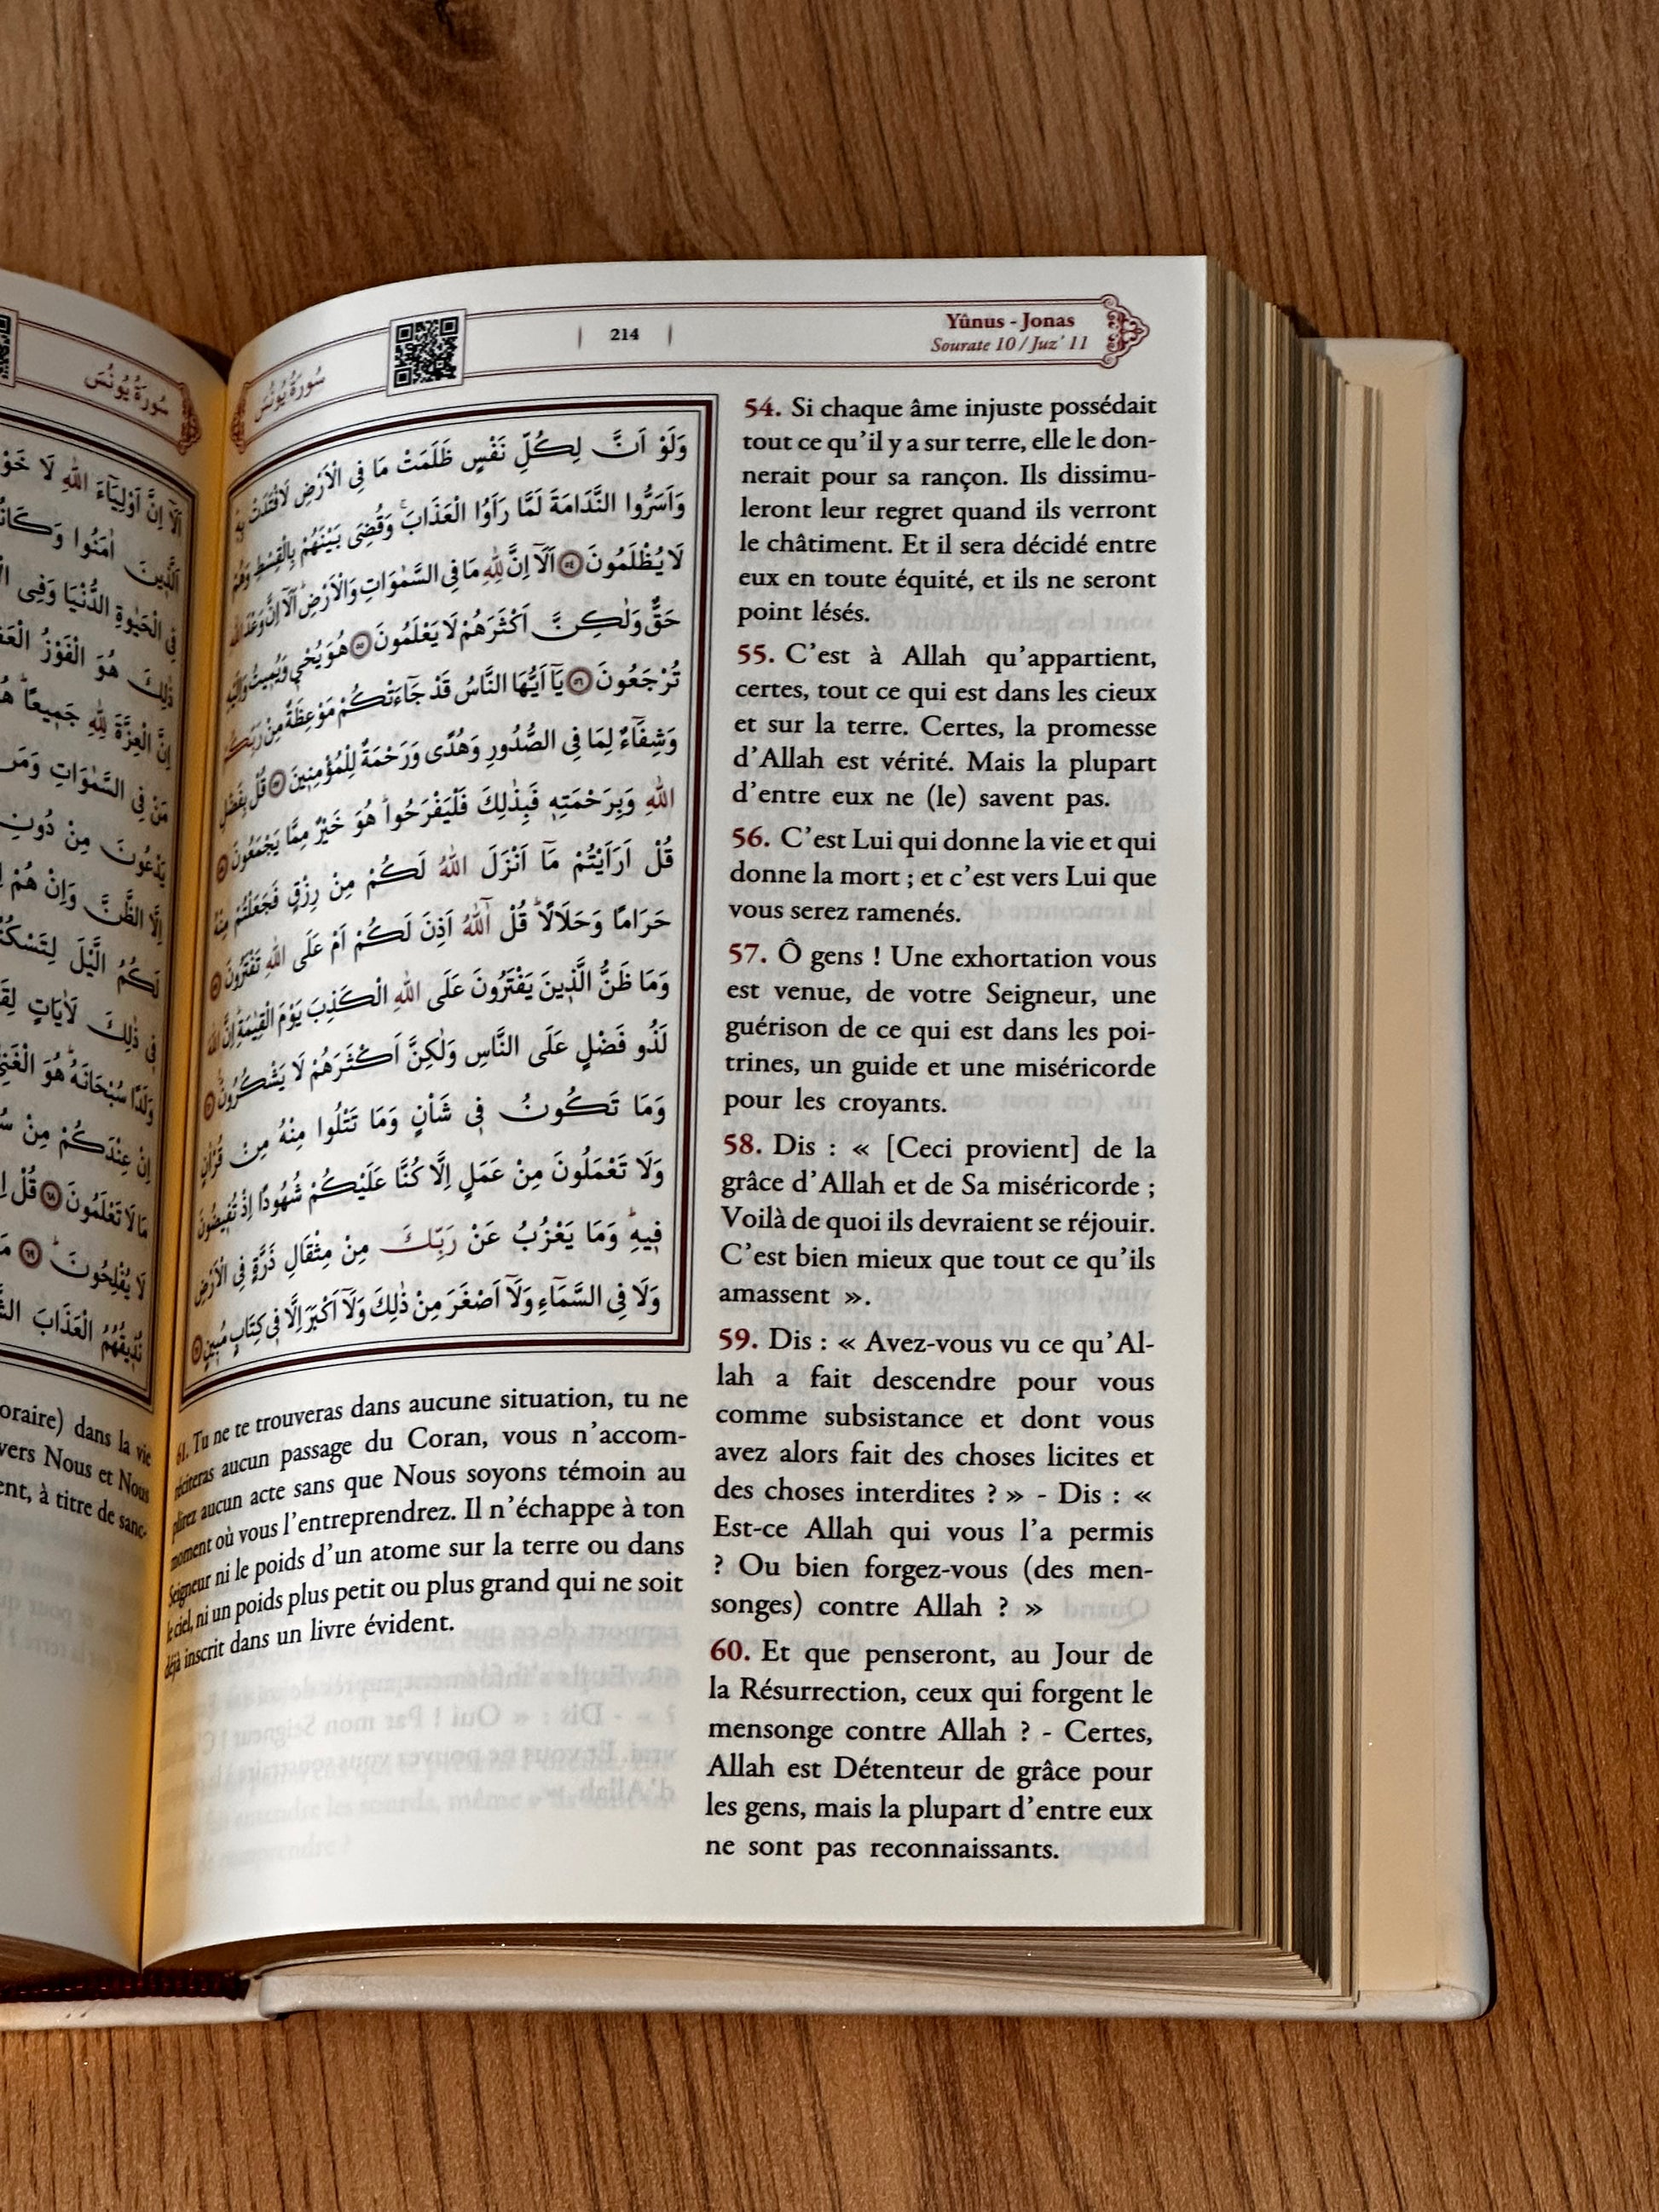 سُورَةُ يُونُسَ
اَلَٓا اِنَّ اَوْلِيَٓاءَ اللّٰهِ لَا
اَلَّذ۪ينَ اٰمَنُوا
فِي الْحَيٰوةِ الدُّنْيَا وَفِي
ذٰلِكَ هُوَ الْفَوْزُ
اِنَّ الْعِزَّةَ لِلّٰهِ جَم۪يعًاۜ
مَنْ فِي السَّمٰوَاتِ وَمَنْ
يَدْعُونَ مِنْ دُونِ
اِلَّا الظَّنَّ وَاِنْ هُمْ
لَكُمُ الَّيْلَ
ف۪ي ذٰلِكَ لَاٰيَاتٍ
وَلَدًا سُبْحَانَهُۜ هُوَ
اِنْ عِنْدَكُمْ مِنْ
مَا لَا تَعْلَمُونَ ﴿٦٨﴾ قُلْ
لَا يُفْلِحُونَۜ ﴿٦٩﴾
نُذ۪يقُهُمُ الْعَذَابَ
oraire) dans la vie
vers Nous et Nous
ent, à titre de sanc-
سُورَةُ يُونُسَ
214
Yûnus - Jonas
Sourate 10 / Juz' 11
وَلَوْ اَنَّ لِكُلِّ نَفْسٍ ظَلَمَتْ مَا فِي الْاَرْضِ لَافْتَدَتْ بِه۪ۜ
وَاَسَرُّوا النَّدَامَةَ لَمَّا رَاَوُا الْعَذَابَۚ وَقُضِيَ بَيْنَهُمْ بِالْقِسْطِ وَهُمْ
لَا يُظْلَمُونَ ﴿٥٤﴾ اَلَٓا اِنَّ لِلّٰهِ مَا فِي السَّمٰوَاتِ وَالْاَرْضِۜ اَلَٓا اِنَّ وَعْدَ اللّٰهِ
حَقٌّ وَلٰكِنَّ اَكْثَرَهُمْ لَا يَعْلَمُونَ ﴿٥٥﴾ هُوَ يُحْي۪ وَيُم۪يتُ وَاِلَيْهِ
تُرْجَعُونَ ﴿٥٦﴾ يَٓا اَيُّهَا النَّاسُ قَدْ جَٓاءَتْكُمْ مَوْعِظَةٌ مِنْ رَبِّكُمْ
وَشِفَٓاءٌ لِمَا فِي الصُّدُورِ وَهُدًى وَرَحْمَةٌ لِلْمُؤْمِن۪ينَ ﴿٥٧﴾ قُلْ بِفَضْلِ
اللّٰهِ وَبِرَحْمَتِه۪ فَبِذٰلِكَ فَلْيَفْرَحُواۜ هُوَ خَيْرٌ مِمَّا يَجْمَعُونَ ﴿٥٨﴾
قُلْ اَرَاَيْتُمْ مَٓا اَنْزَلَ اللّٰهُ لَكُمْ مِنْ رِزْقٍ فَجَعَلْتُمْ مِنْهُ
حَرَامًا وَحَلَالًاۜ قُلْ آٰللّٰهُ اَذِنَ لَكُمْ اَمْ عَلَى اللّٰهِ تَفْتَرُونَ ﴿٥٩﴾
وَمَا ظَنُّ الَّذ۪ينَ يَفْتَرُونَ عَلَى اللّٰهِ الْكَذِبَ يَوْمَ الْقِيٰمَةِۜ اِنَّ اللّٰهَ
لَذُو فَضْلٍ عَلَى النَّاسِ وَلٰكِنَّ اَكْثَرَهُمْ لَا يَشْكُرُونَ ﴿٦٠﴾
وَمَا تَكُونُ ف۪ي شَاْنٍ وَمَا تَتْلُوا مِنْهُ مِنْ قُرْاٰنٍ
وَلَا تَعْمَلُونَ مِنْ عَمَلٍ اِلَّا كُنَّا عَلَيْكُمْ شُهُودًا اِذْ تُف۪يضُونَ
ف۪يهِۜ وَمَا يَعْزُبُ عَنْ رَبِّكَ مِنْ مِثْقَالِ ذَرَّةٍ فِي الْاَرْضِ
وَلَا فِي السَّمَٓاءِ وَلَٓا اَصْغَرَ مِنْ ذٰلِكَ وَلَٓا اَكْبَرَ اِلَّا ف۪ي كِتَابٍ مُب۪ينٍ ﴿٦١﴾
54. Si chaque âme injuste possédait
tout ce qu'il y a sur terre, elle le don-
nerait pour sa rançon. Ils dissimu-
leront leur regret quand ils verront
le châtiment. Et il sera décidé entre
eux en toute équité, et ils ne seront
point lésés.
55. C'est à Allah qu'appartient,
certes, tout ce qui est dans les cieux
et sur la terre. Certes, la promesse
d'Allah est vérité. Mais la plupart
d'entre eux ne (le) savent pas.
56. C'est Lui qui donne la vie et qui
donne la mort ; et c'est vers Lui que
vous serez ramenés.
57. Ô gens ! Une exhortation vous
est venue, de votre Seigneur, une
guérison de ce qui est dans les poi-
trines, un guide et une miséricorde
pour les croyants.
58. Dis : « [Ceci provient] de la
grâce d'Allah et de Sa miséricorde ;
Voilà de quoi ils devraient se réjouir.
C'est bien mieux que tout ce qu'ils
amassent ».
59. Dis : « Avez-vous vu ce qu'Al-
lah a fait descendre pour vous
comme subsistance et dont vous
avez alors fait des choses licites et
des choses interdites ? » - Dis : «
Est-ce Allah qui vous l'a permis
? Ou bien forgez-vous (des men-
songes) contre Allah ? »
60. Et que penseront, au Jour de
la Résurrection, ceux qui forgent le
mensonge contre Allah ? - Certes,
Allah est Détenteur de grâce pour
les gens, mais la plupart d'entre eux
ne sont pas reconnaissants.
61. Tu ne te trouveras dans aucune situation, tu ne
réciteras aucun passage du Coran, vous n'accom-
plirez aucun acte sans que Nous soyons témoin au
moment où vous l'entreprendrez. Il n'échappe à ton
Seigneur ni le poids d'un atome sur la terre ou dans
le ciel, ni un poids plus petit ou plus grand qui ne soit
déjà inscrit dans un livre évident.